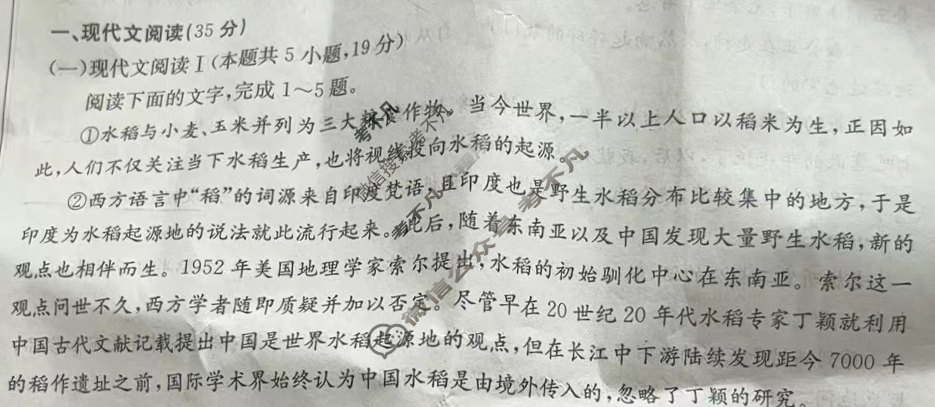 一、现代文阅读(35分)
(一)现代文阅读Ⅰ(本题共5小题,19分)
阅读下面的文字,完成1~5题。
①水稻与小麦、玉米并列为三大粮食作物。当今世界,一半以上人口以稻米为生,正因如
此,人们不仅关注当下水稻生产,也将视线投向水稻的起源。
②西方语言中“稻”的词源来自印度梵语,且印度也是野生水稻分布比较集中的地方,于是
印度为水稻起源地的说法就此流行起来。此后,随着东南亚以及中国发现大量野生水稻,新的
观点也相伴而生。1952年美国地理学家索尔提出,水稻的初始驯化中心在东南亚。索尔这一
观点问世不久,西方学者随即质疑并加以否定。尽管早在20世纪20年代水稻专家丁颖就利用
中国古代文献记载提出中国是世界水稻起源地的观点,但在长江中下游陆续发现距今7000年
的稻作遗址之前,国际学术界始终认为中国水稻是由境外传入的,忽略了丁颖的研究。
微信公众号:考不凡